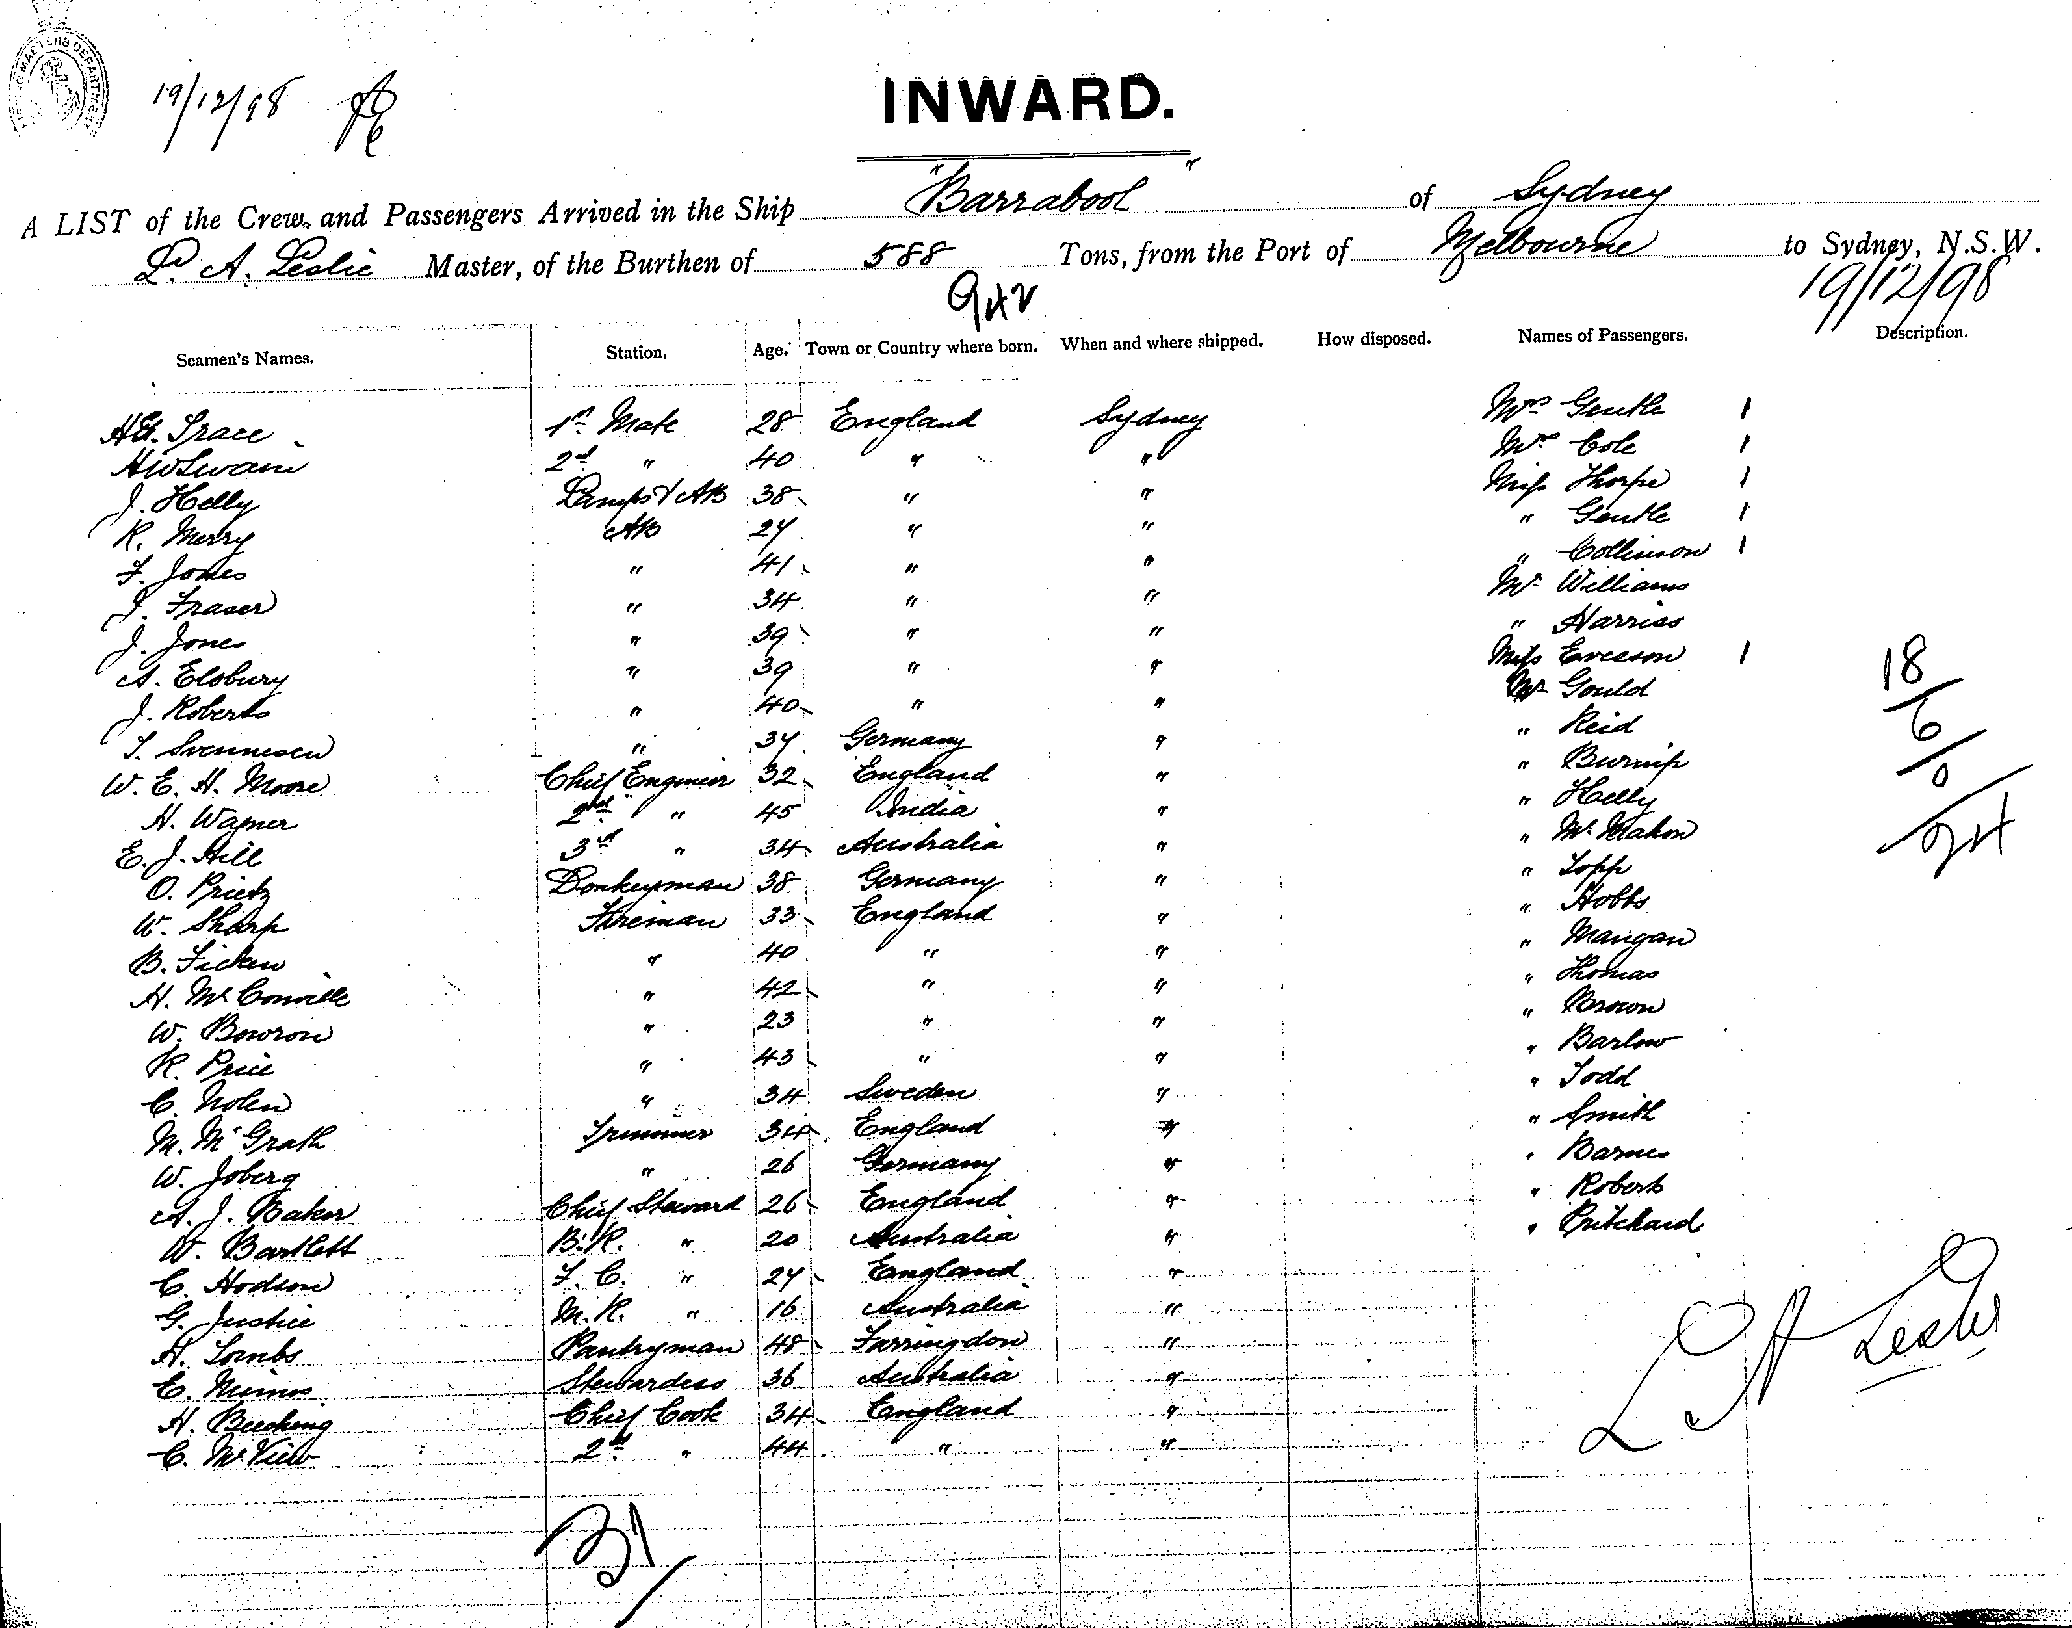 19/12/98
INWARD.
A LIST of the Crew and Passengers Arrived in the Ship "Barrabool" of Sydney
L. A. Leslie Master, of the Burthen of 588 Tons, from the Port of Melbourne to Sydney, N.S.W.
942 19/12/98
Seamen's Names. Station. Age. Town or Country where born. When and where shipped. How disposed. Names of Passengers. Description.
1st Mate 28 England Sydney Mrs Gentle 1
2nd " 40 " " Mrs Cole 1
J. Helly Lamps & AB 38 " " Miss Thorpe 1
R. Merry AB 27 " " " Gentle 1
F. Jones " 41 " " " Collinson 1
J. Fraser " 34 " " Mr Williams
J. Jones " 39 " " " Harriss
A. Elsbury " 39 " " Miss Evesson 1
J. Roberts " 40 " " Mr Gould
Svennesen " 37 Germany " " Reid
W. E. H. Moore Chief Engineer 32 England " " Burnip
H. Wagner 2nd " 45 India " " Helly
E. J. Hill 3rd " 34 Australia " " McMahon
O. Prietz Donkeyman 38 Germany " " Topp
W. Sharp Fireman 33 England " " Hobbs
B. Ficken " 40 " " " Mangan
H. McConville " 42 " " " Thomas
W. Bowron " 23 " " " Brown
R. Price " 43 " " " Barlow
C. Nolen " 34 Sweden " " Todd
M. McGrath Trimmer 34 England " " Smith
W. Joberg " 26 Germany " " Barnes
A. J. Baker Chief Steward 26 England " " Roberts
W. Bartlett B.R. " 20 Australia " " Pritchard
C. Hodson F. C. " 27 England "
G. Justice M.R. " 16 Australia "
H. Tombs Pantryman 48 Farringdon "
C. Mimms Stewardess 36 Australia "
H. Beeching Chief Cook 34 England "
C. McView 2nd " 44 " "
18
6
0
24
L A Leslie
31